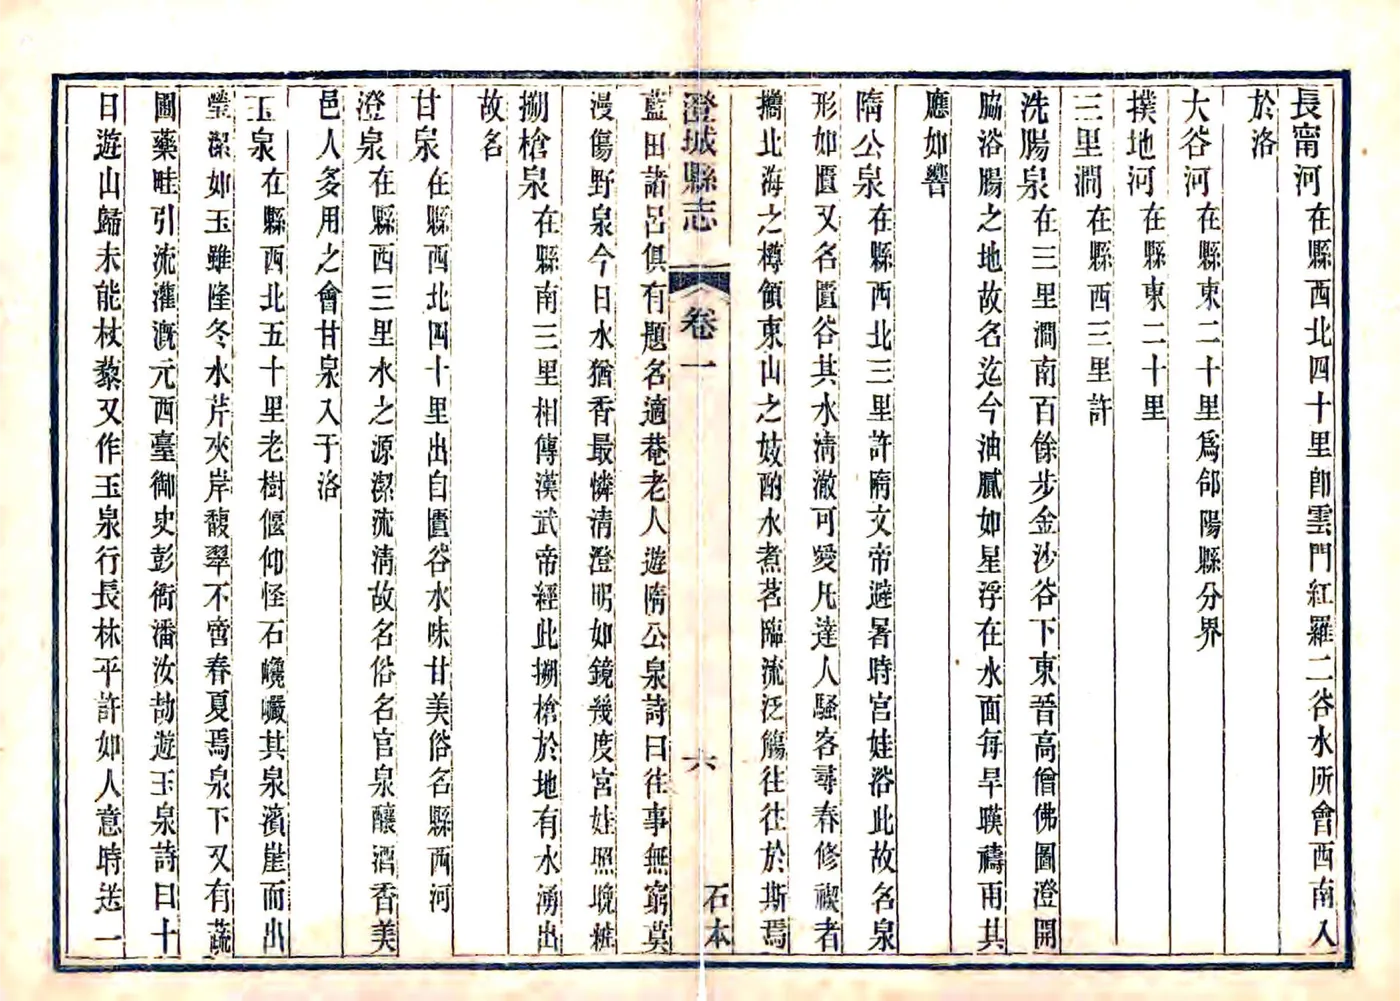 長甯河在縣西北四十里卽雲門紅羅二谷水所會西南入
於洛
大谷河在縣東二十里爲郃陽縣分界
撲地河在縣東二十里
三里澗在縣西三里許
洗腸泉在三里澗南百餘步金沙谷下東晉高僧佛圖澄開
脇浴腸之地故名迄今油膩如星浮在水面每旱暵禱雨其
應如響
隋公泉在縣西北三里許隋文帝避暑時宮娃浴此故名泉
形如匱又名匱谷其水淸澈可愛凡達人騷客尋春修禊者
攜北海之樽領東山之妓酌水煮茗臨流泛觴往往於斯焉
澄城縣志 卷一 六 石本
藍田諸呂俱有題名適菴老人遊隋公泉詩曰往事無窮莫
漫傷野泉今日水猶香最憐淸澄明如鏡幾度宮娃照晩粧
搠槍泉在縣南三里相傳漢武帝經此搠槍於地有水湧出
故名
甘泉在縣西北四十里出自匱谷水味甘美俗名縣西河
澄泉在縣西三里水之源潔流淸故名俗名官泉釀酒香美
邑人多用之會甘泉入于洛
玉泉在縣西北五十里老樹偃仰怪石巉巗其泉濱崖而出
瑩潔如玉雖隆冬水芹夾岸馥翠不啻春夏焉泉下又有蔬
圃藥畦引流灌漑元西臺御史彭衙潘汝劼遊玉泉詩曰十
日遊山歸未能杖藜又作玉泉行長林平許如人意時送一